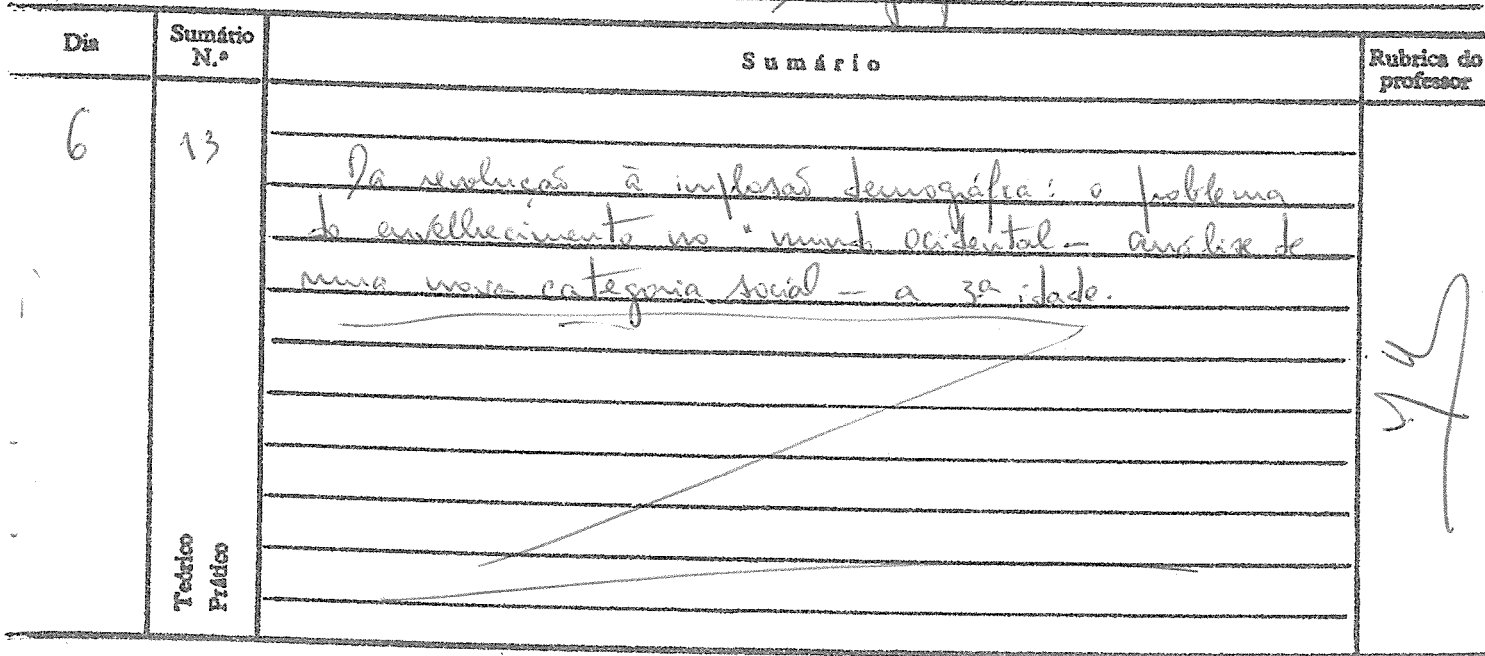 Dia
Sumário N.º
Sumário
Rubrica do professor
6
13
Da revolução à implosão demográfica: o problema
do envelhecimento no "mundo ocidental – análise de
uma nova categoria social – a 3ª idade.
Teórico
Prático